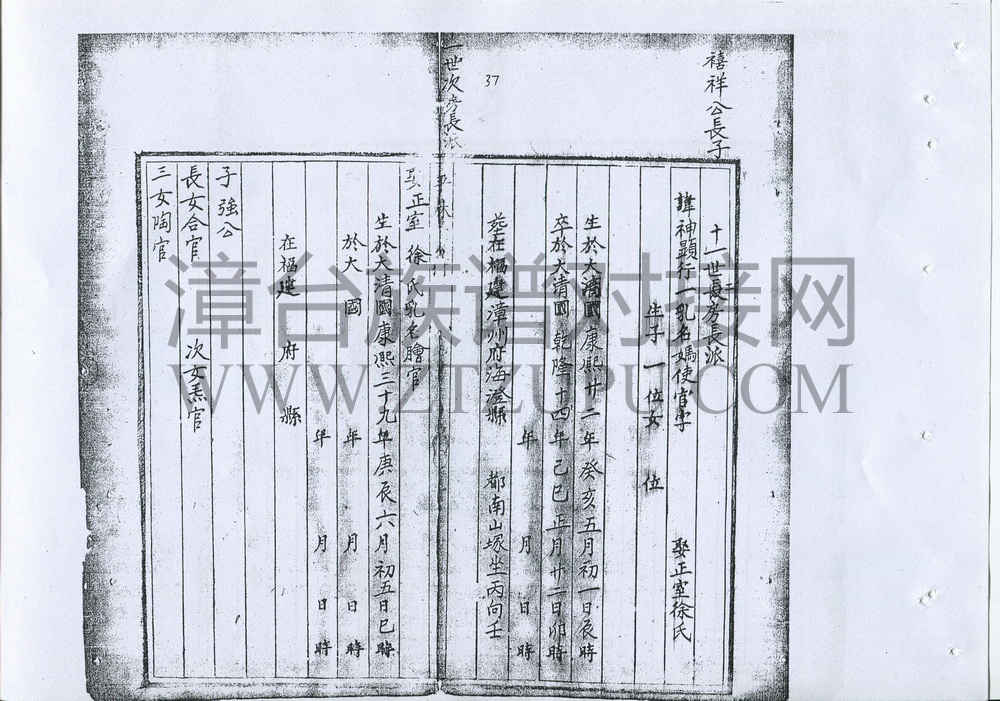 禧祥公長子
十一世長二房長派
諱神顯行一乳名媽使官字
娶正室徐氏
生子一位女 位
生於大清國康熙廿二年癸亥五月初一日辰時
卒於大清國乾隆十四年己巳正月廿二日卯時
年 月 日 時
葬在福建漳州府海澄縣 都南山塚坐丙向壬
37
一世次房長派
正室 徐氏乳名 官
生於大清國康熙三十九年庚辰六月初五日巳時
於大 國 年 月 日 時
年 月 日 時
在福建 府 縣
子強公
長女合官 次女 官
三女陶官
漳台族谱对接网
WWW.ZTZUPU.COM